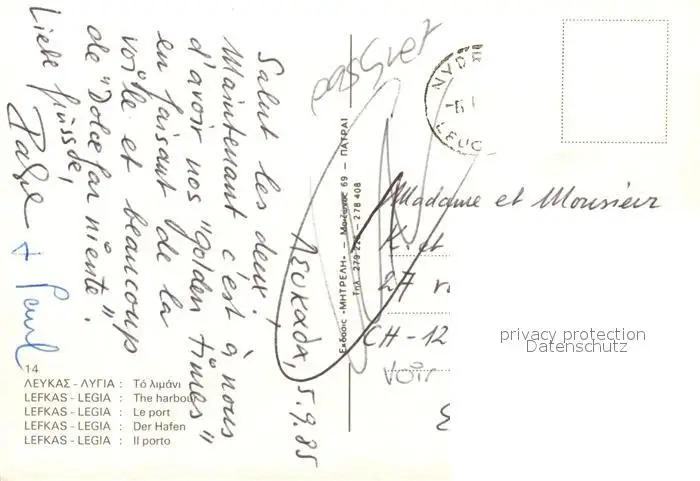 Λευκαδα, 5.9.85
Salut les deux!
Maintenant c'est à nous
d'avoir nos "golden times"
en faisant de la
voile et beaucoup
de "Dolce far niente".
Liebe Grüsse,
+ Paul
14
ΛΕΥΚΑΣ - ΛΥΓΙΑ : Τό λιμάνι
LEFKAS - LEGIA : The harbour
LEFKAS - LEGIA : Le port
LEFKAS - LEGIA : Der Hafen
LEFKAS - LEGIA : Il porto
Εκδοσις «ΜΗΤΡΕΛΗ» — Μαιζώνος 69 — ΠΑΤΡΑΙ
Τηλ. 279 226 – 278 408
Madame et Monsieur
K. et
27
CH-12
privacy protection
Datenschutz